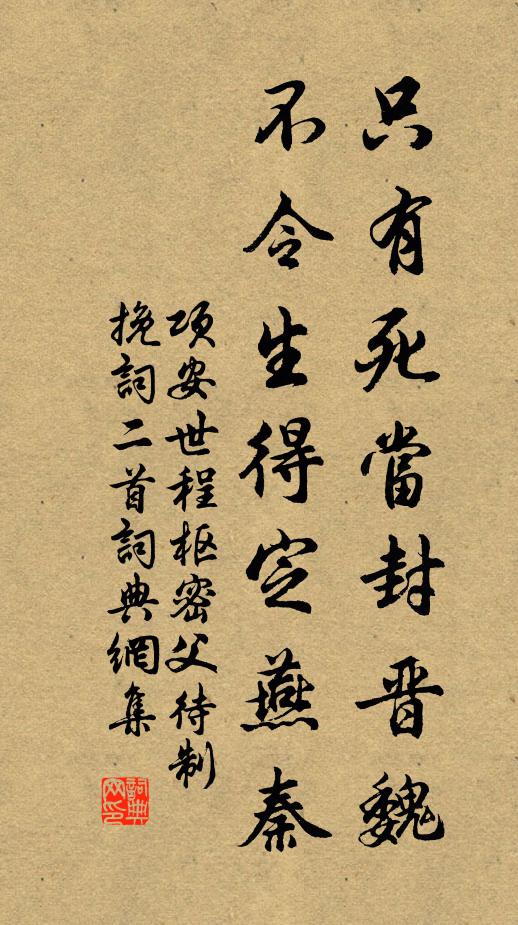 只有死當封晋魏
不令生得定燕秦
项安世程枢密父待制
挽詞二首詞典網集
詞典網印